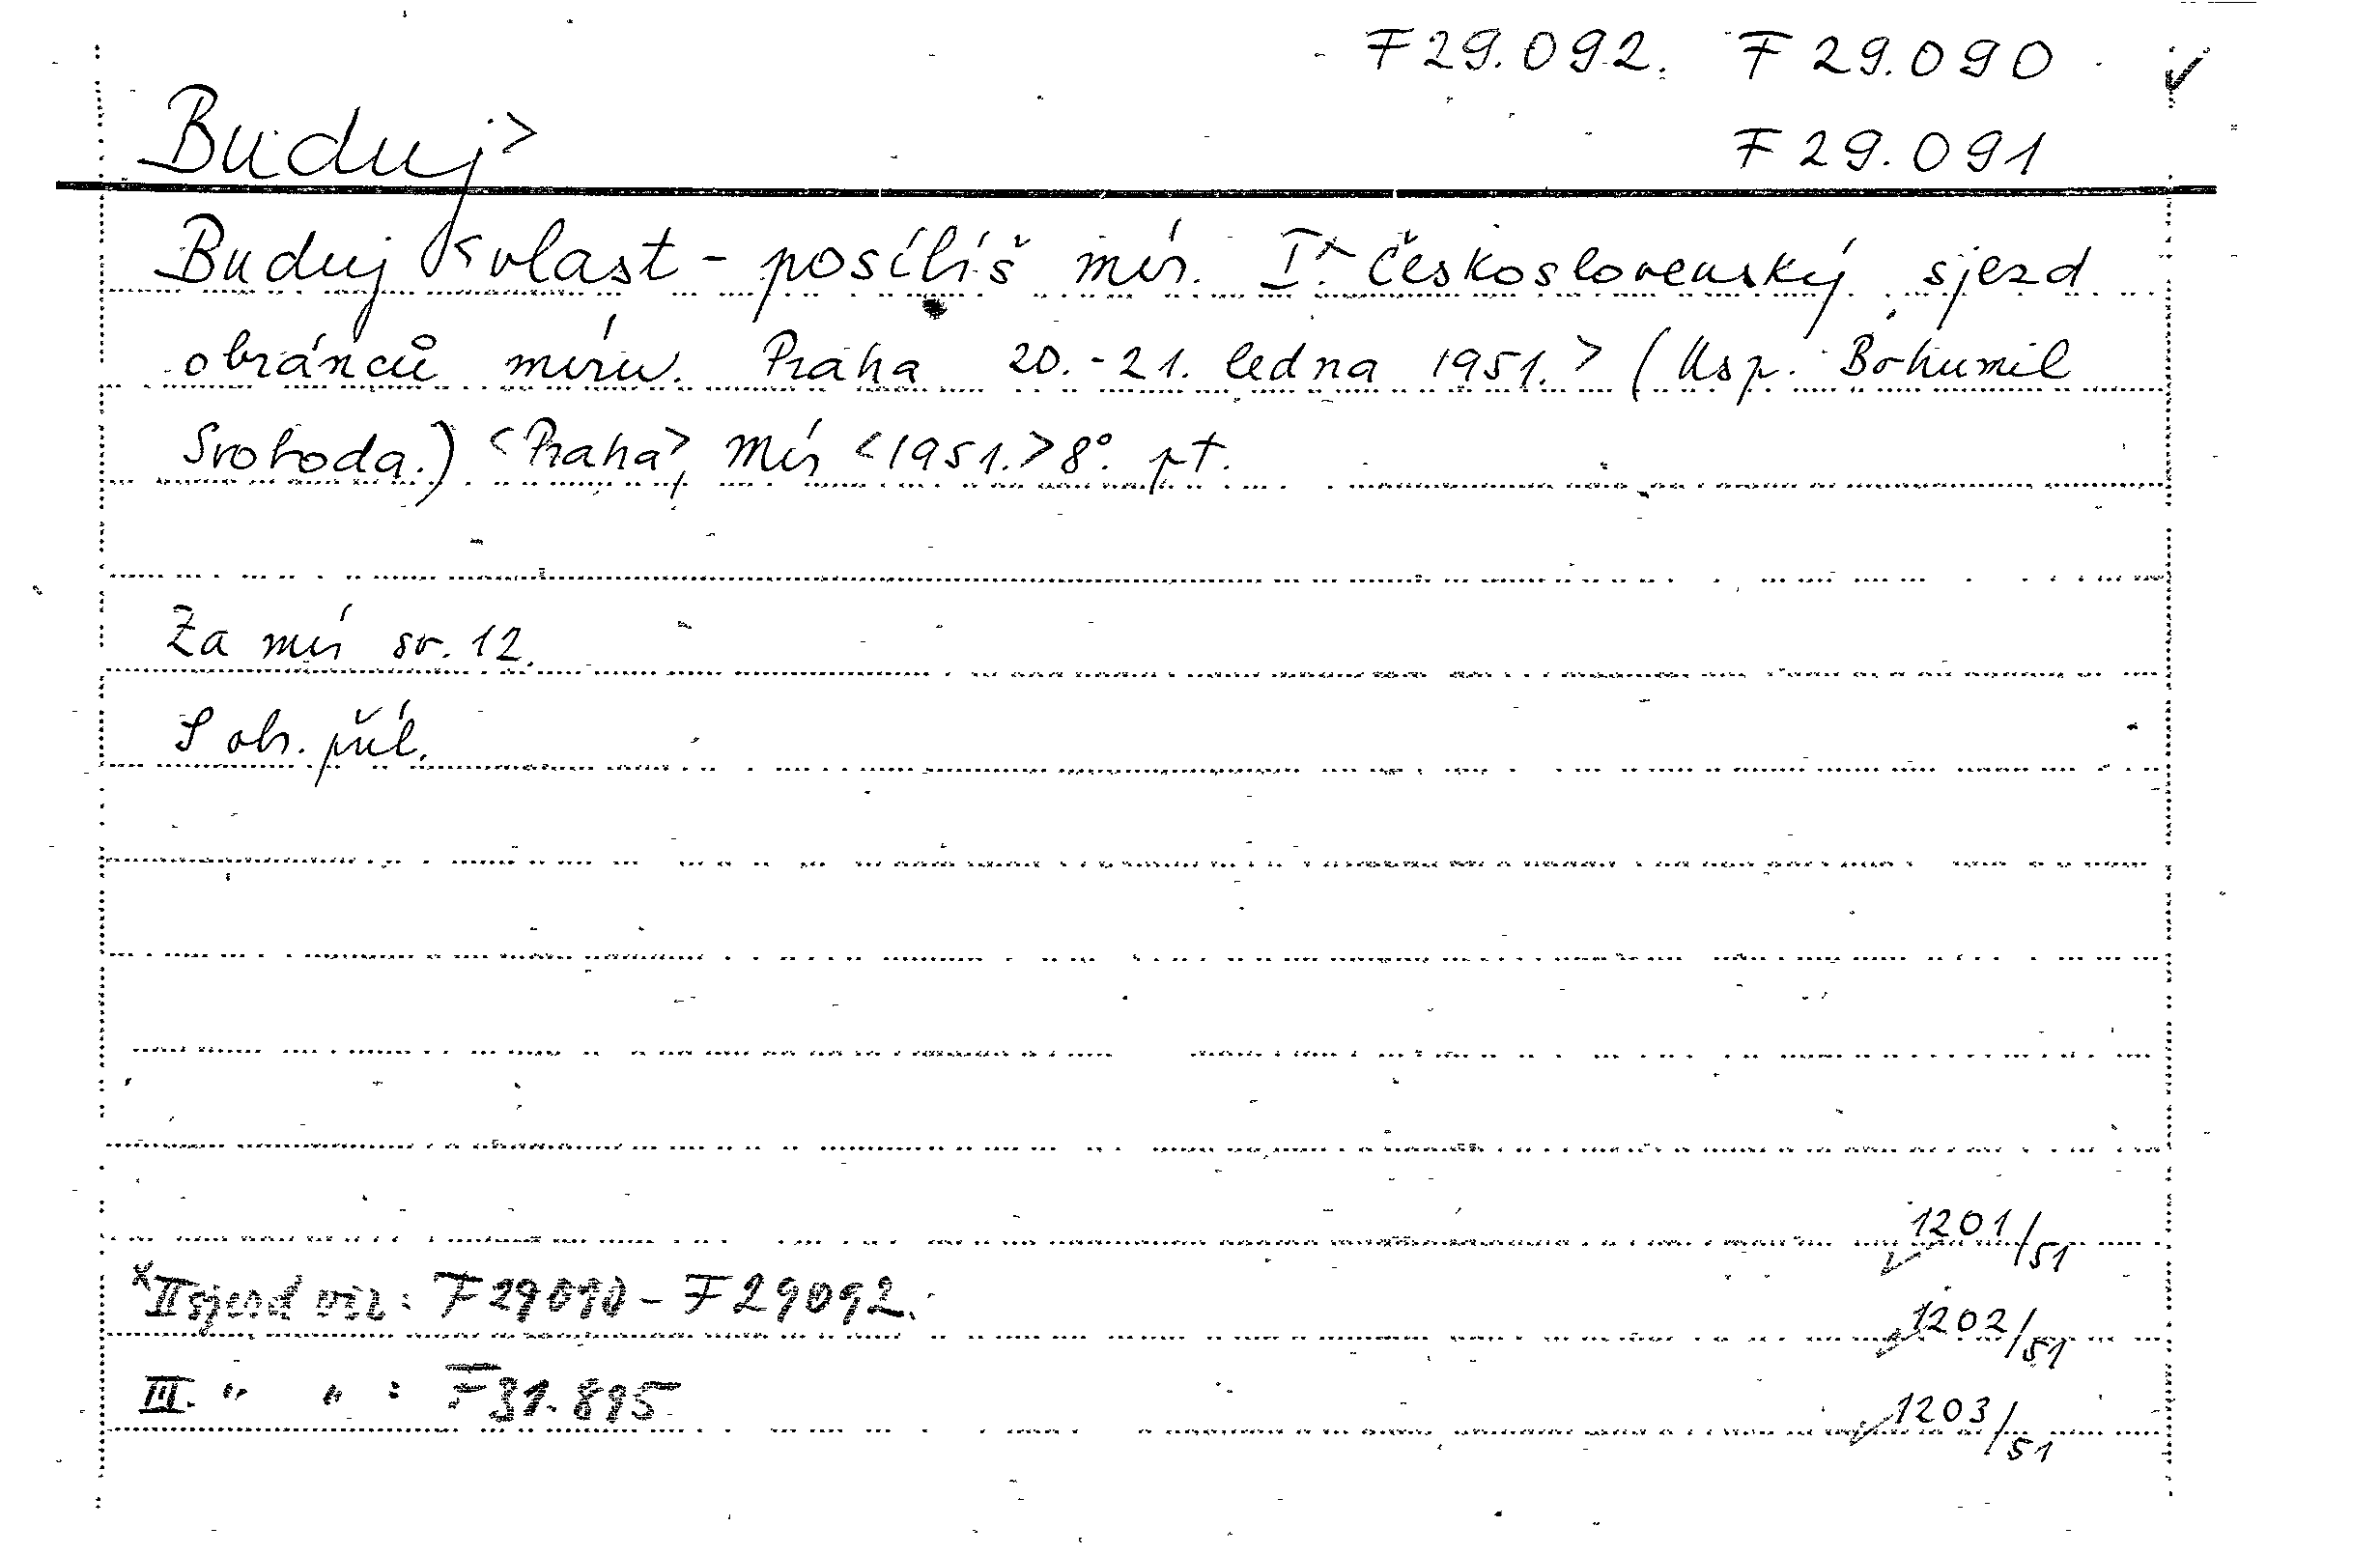 F 29.092. F 29.090 ✓
Buduj>
F 29.091
Buduj vlast - posílíš mír. I.x československý sjezd
obránců míru. Praha 20.-21. ledna 1951.> (Usp. Bohumil
Svoboda.) <Praha>, Mír <1951.> 8°. pt.
Za mír sv. 12.
S obr. příl.
1201/51
x II sjezd viz: F 29090 - F 29092.
1202/51
III. " " : F 31.895
1203/51